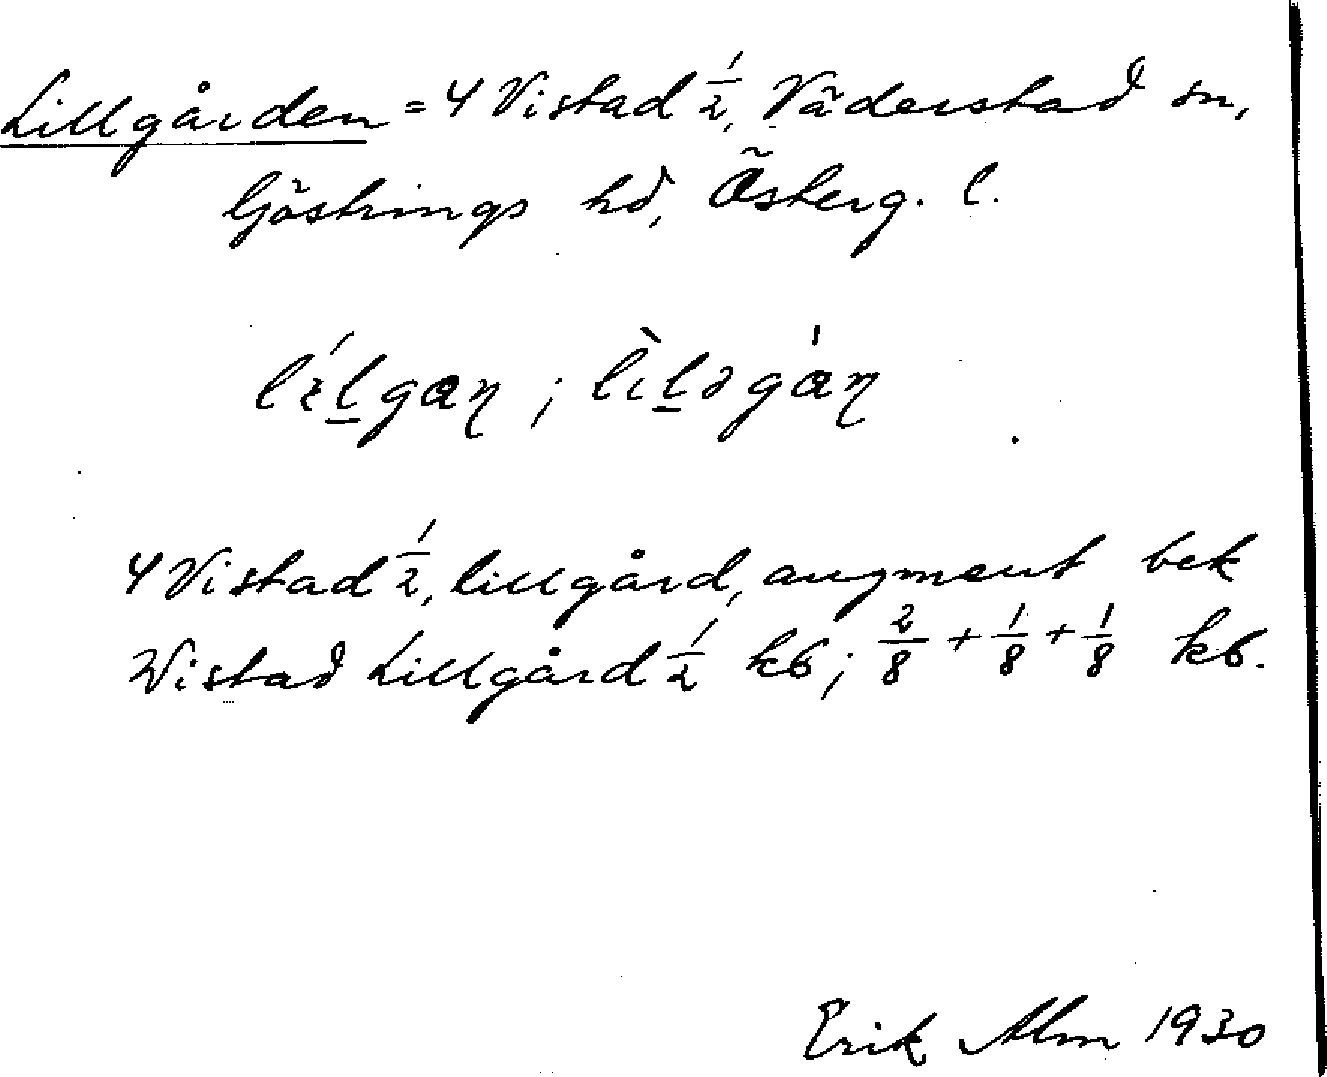 Lillgården = 4 Vistad 1/2, Väderstad sn,
Göstrings hd, Österg. l.
lɪ́l̲gaɳ ; lɪ̀l̲əgáɳ
4 Vistad 1/2, lillgård, augment bek
Wistad Lillgård 1/2 kb; 2/8 + 1/8 + 1/8 kb.
Erik Alm 1930